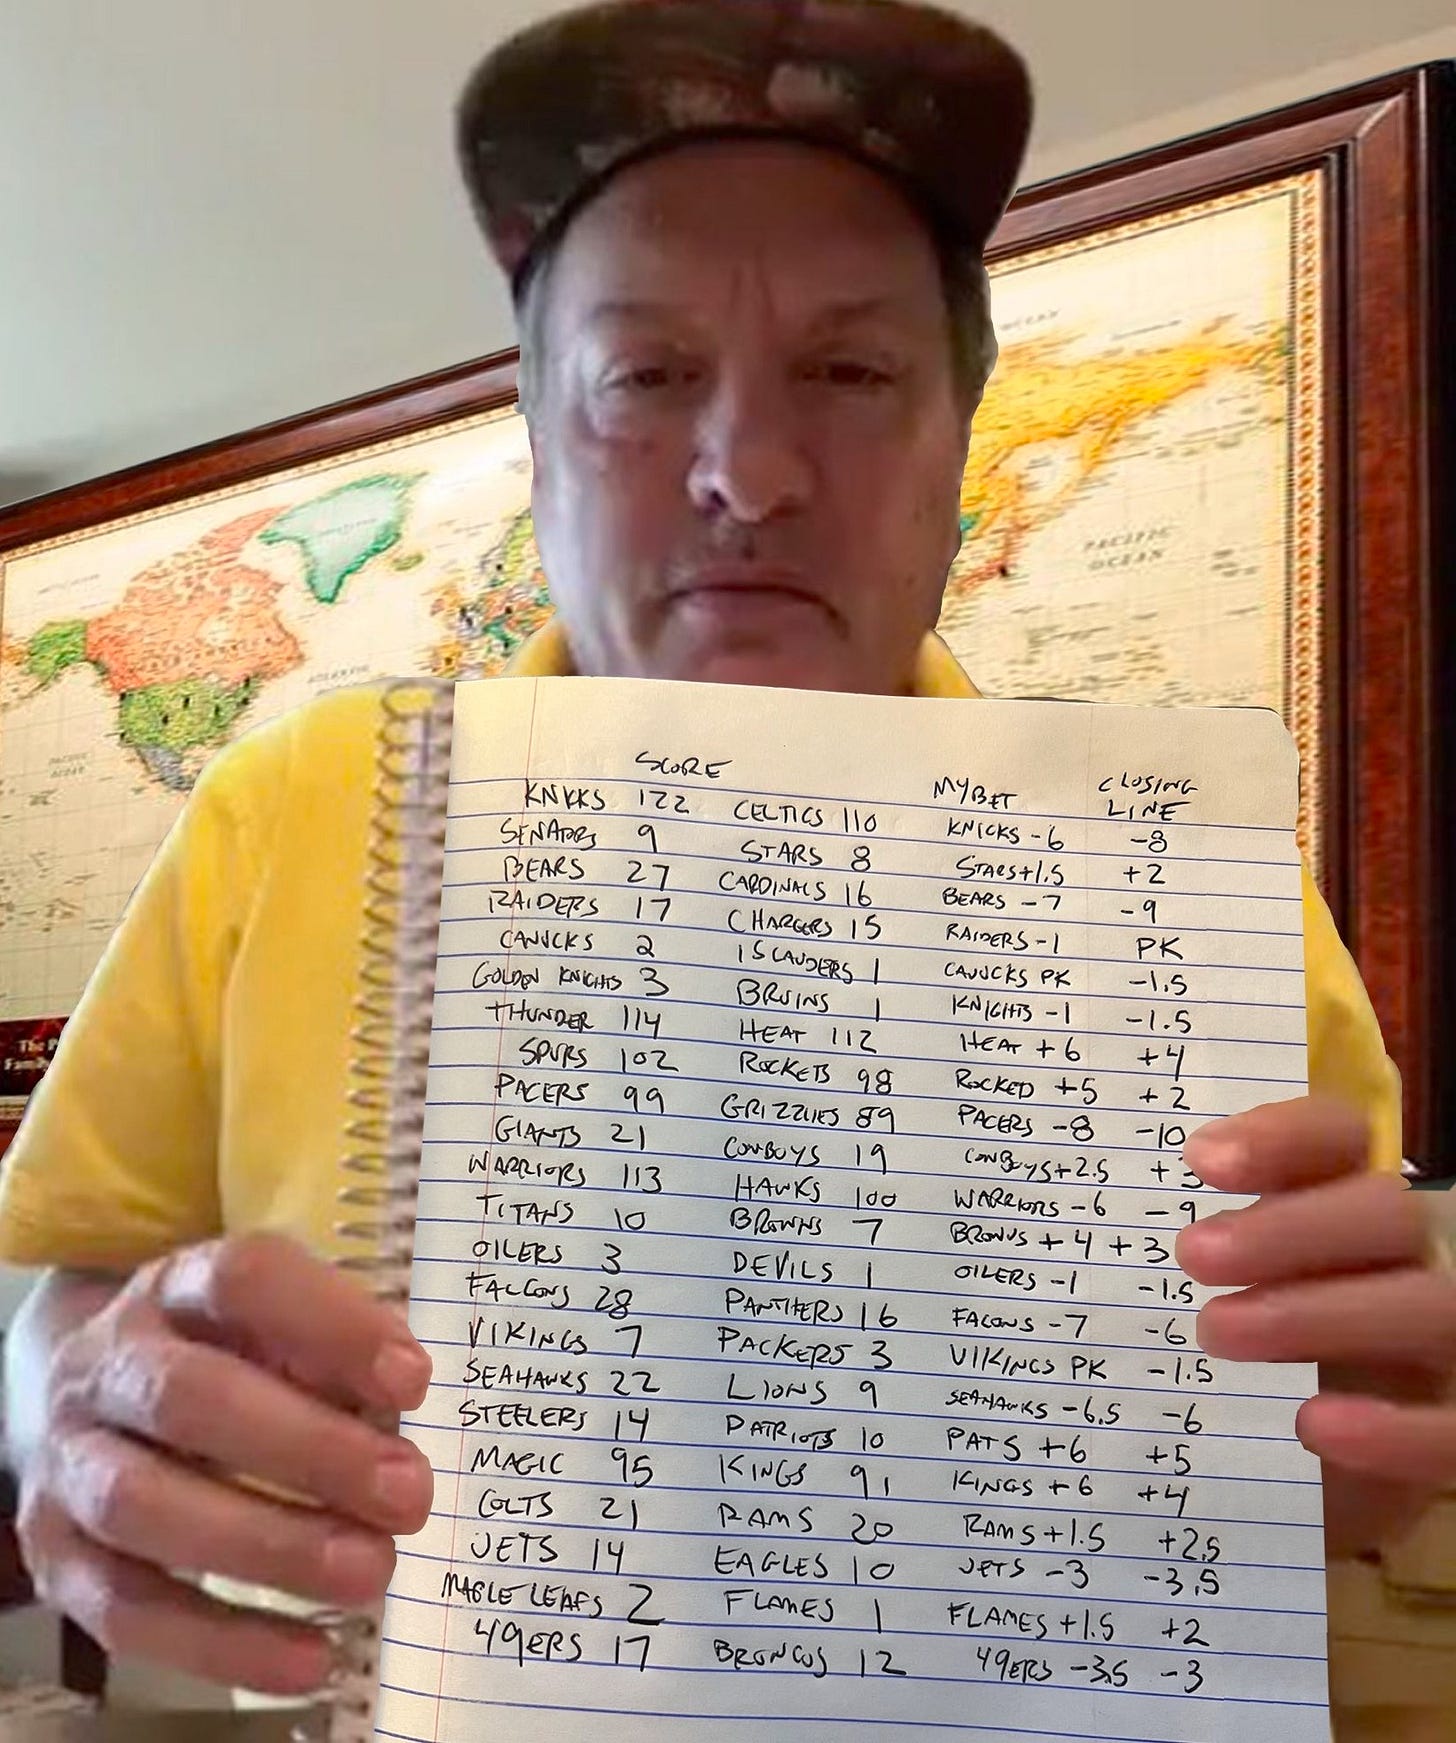 SCORE MYBET CLOSING LINE
KNICKS 122 CELTICS 110 KNICKS -6 -8
SENATORS 9 STARS 8 STARS +1.5 +2
BEARS 27 CARDINALS 16 BEARS -7 -9
RAIDERS 17 CHARGERS 15 RAIDERS -1 PK
CANUCKS 2 ISLANDERS 1 CANUCKS PK -1.5
GOLDEN KNIGHTS 3 BRUINS 1 KNIGHTS -1 -1.5
THUNDER 114 HEAT 112 HEAT +6 +4
SPURS 102 ROCKETS 98 ROCKED +5 +2
PACERS 99 GRIZZLIES 89 PACERS -8 -10
GIANTS 21 COWBOYS 19 COWBOYS +2.5 +3
WARRIORS 113 HAWKS 100 WARRIORS -6 -9
TITANS 10 BROWNS 7 BROWNS +4 +3
OILERS 3 DEVILS 1 OILERS -1 -1.5
FALCONS 28 PANTHERS 16 FALCONS -7 -6
VIKINGS 7 PACKERS 3 VIKINGS PK -1.5
SEAHAWKS 22 LIONS 9 SEAHAWKS -6.5 -6
STEELERS 14 PATRIOTS 10 PATS +6 +5
MAGIC 95 KINGS 91 KINGS +6 +4
COLTS 21 RAMS 20 RAMS +1.5 +2.5
JETS 14 EAGLES 10 JETS -3 -3.5
MAPLE LEAFS 2 FLAMES 1 FLAMES +1.5 +2
49ERS 17 BRONCOS 12 49ERS -3.5 -3
PACIFIC
OCEAN
The